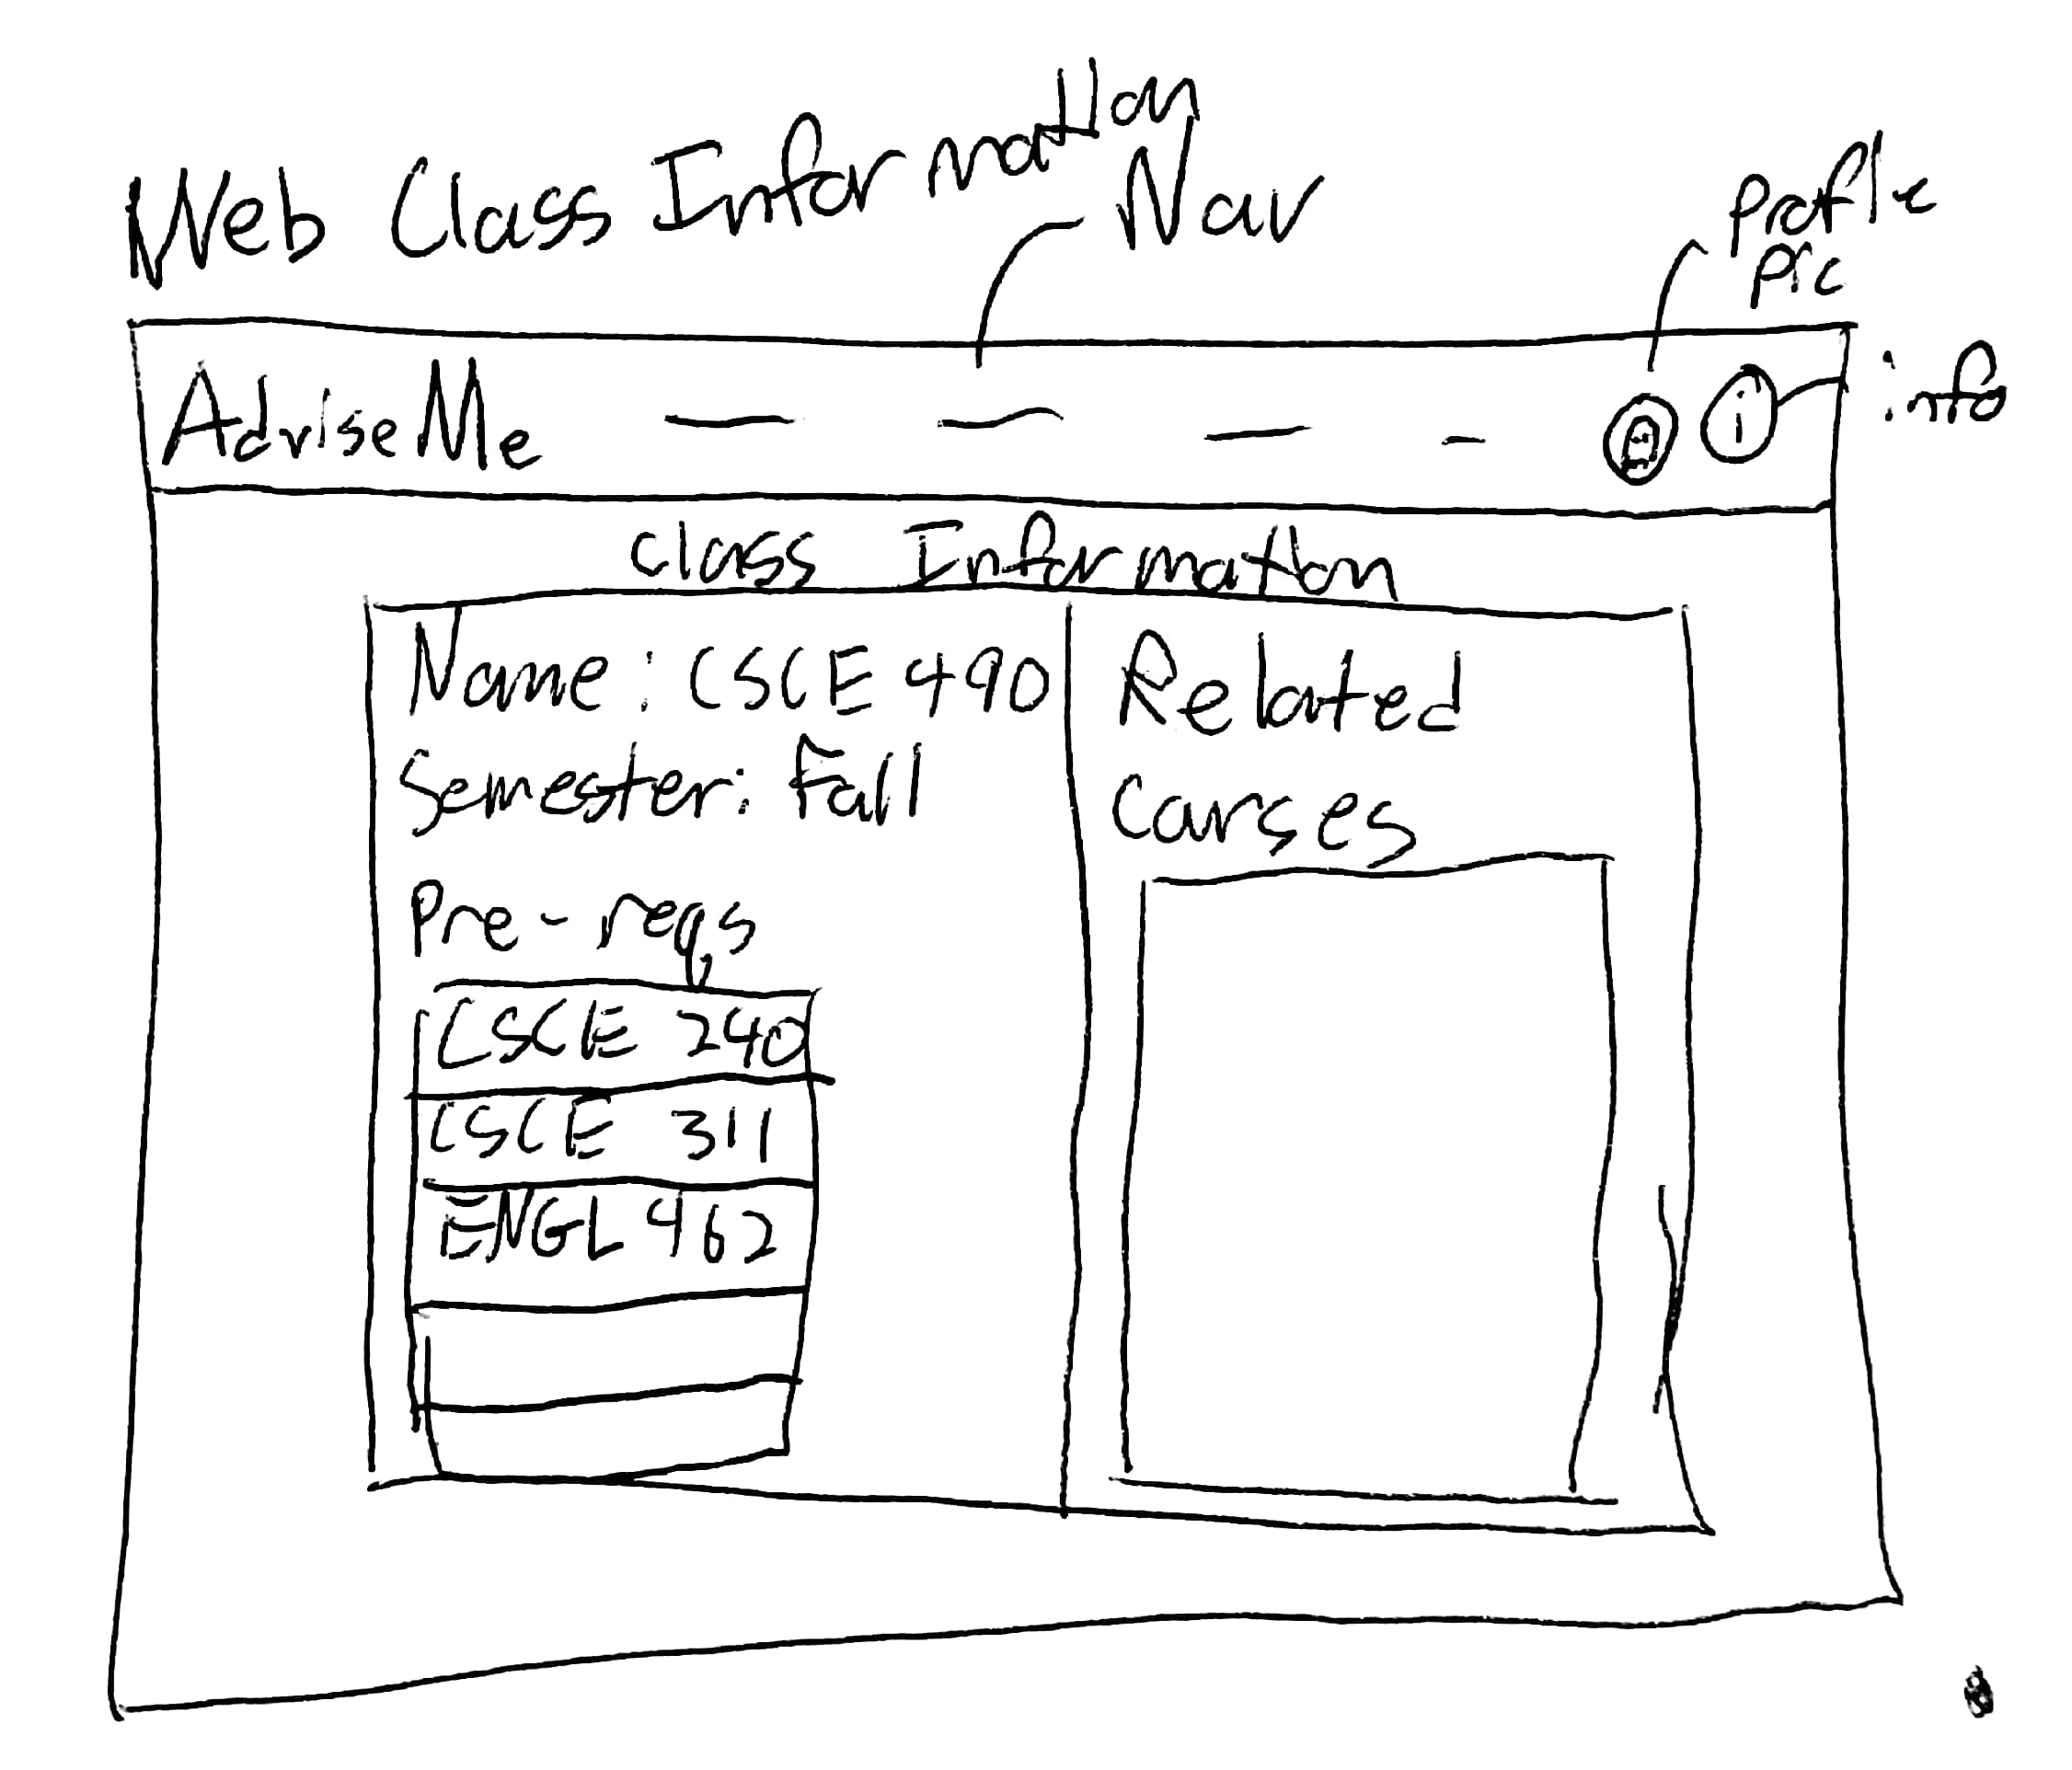 Web Class Information
Nav
Profile
pic
AdviseMe
i
info
Class Information
Name: CSCE 490
Semester: Fall
Pre-reqs
CSCE 240
CSCE 311
ENGL 462
Related
Courses